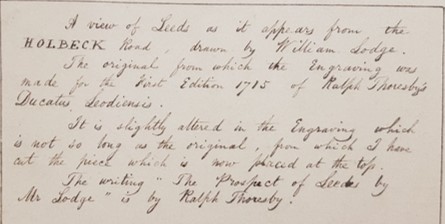 A view of Leeds as it appears from the
HOLBECK Road, drawn by William Lodge.
The original from which the Engraving was
made for the First Edition 1715 of Ralph Thoresby's
Ducatus Leodiensis.
It is slightly altered in the Engraving which
is not so long as the original, from which I have
cut the piece which is now placed at the top.
The writing "The Prospect of Leedes by
Mr Lodge" is by Ralph Thoresby.